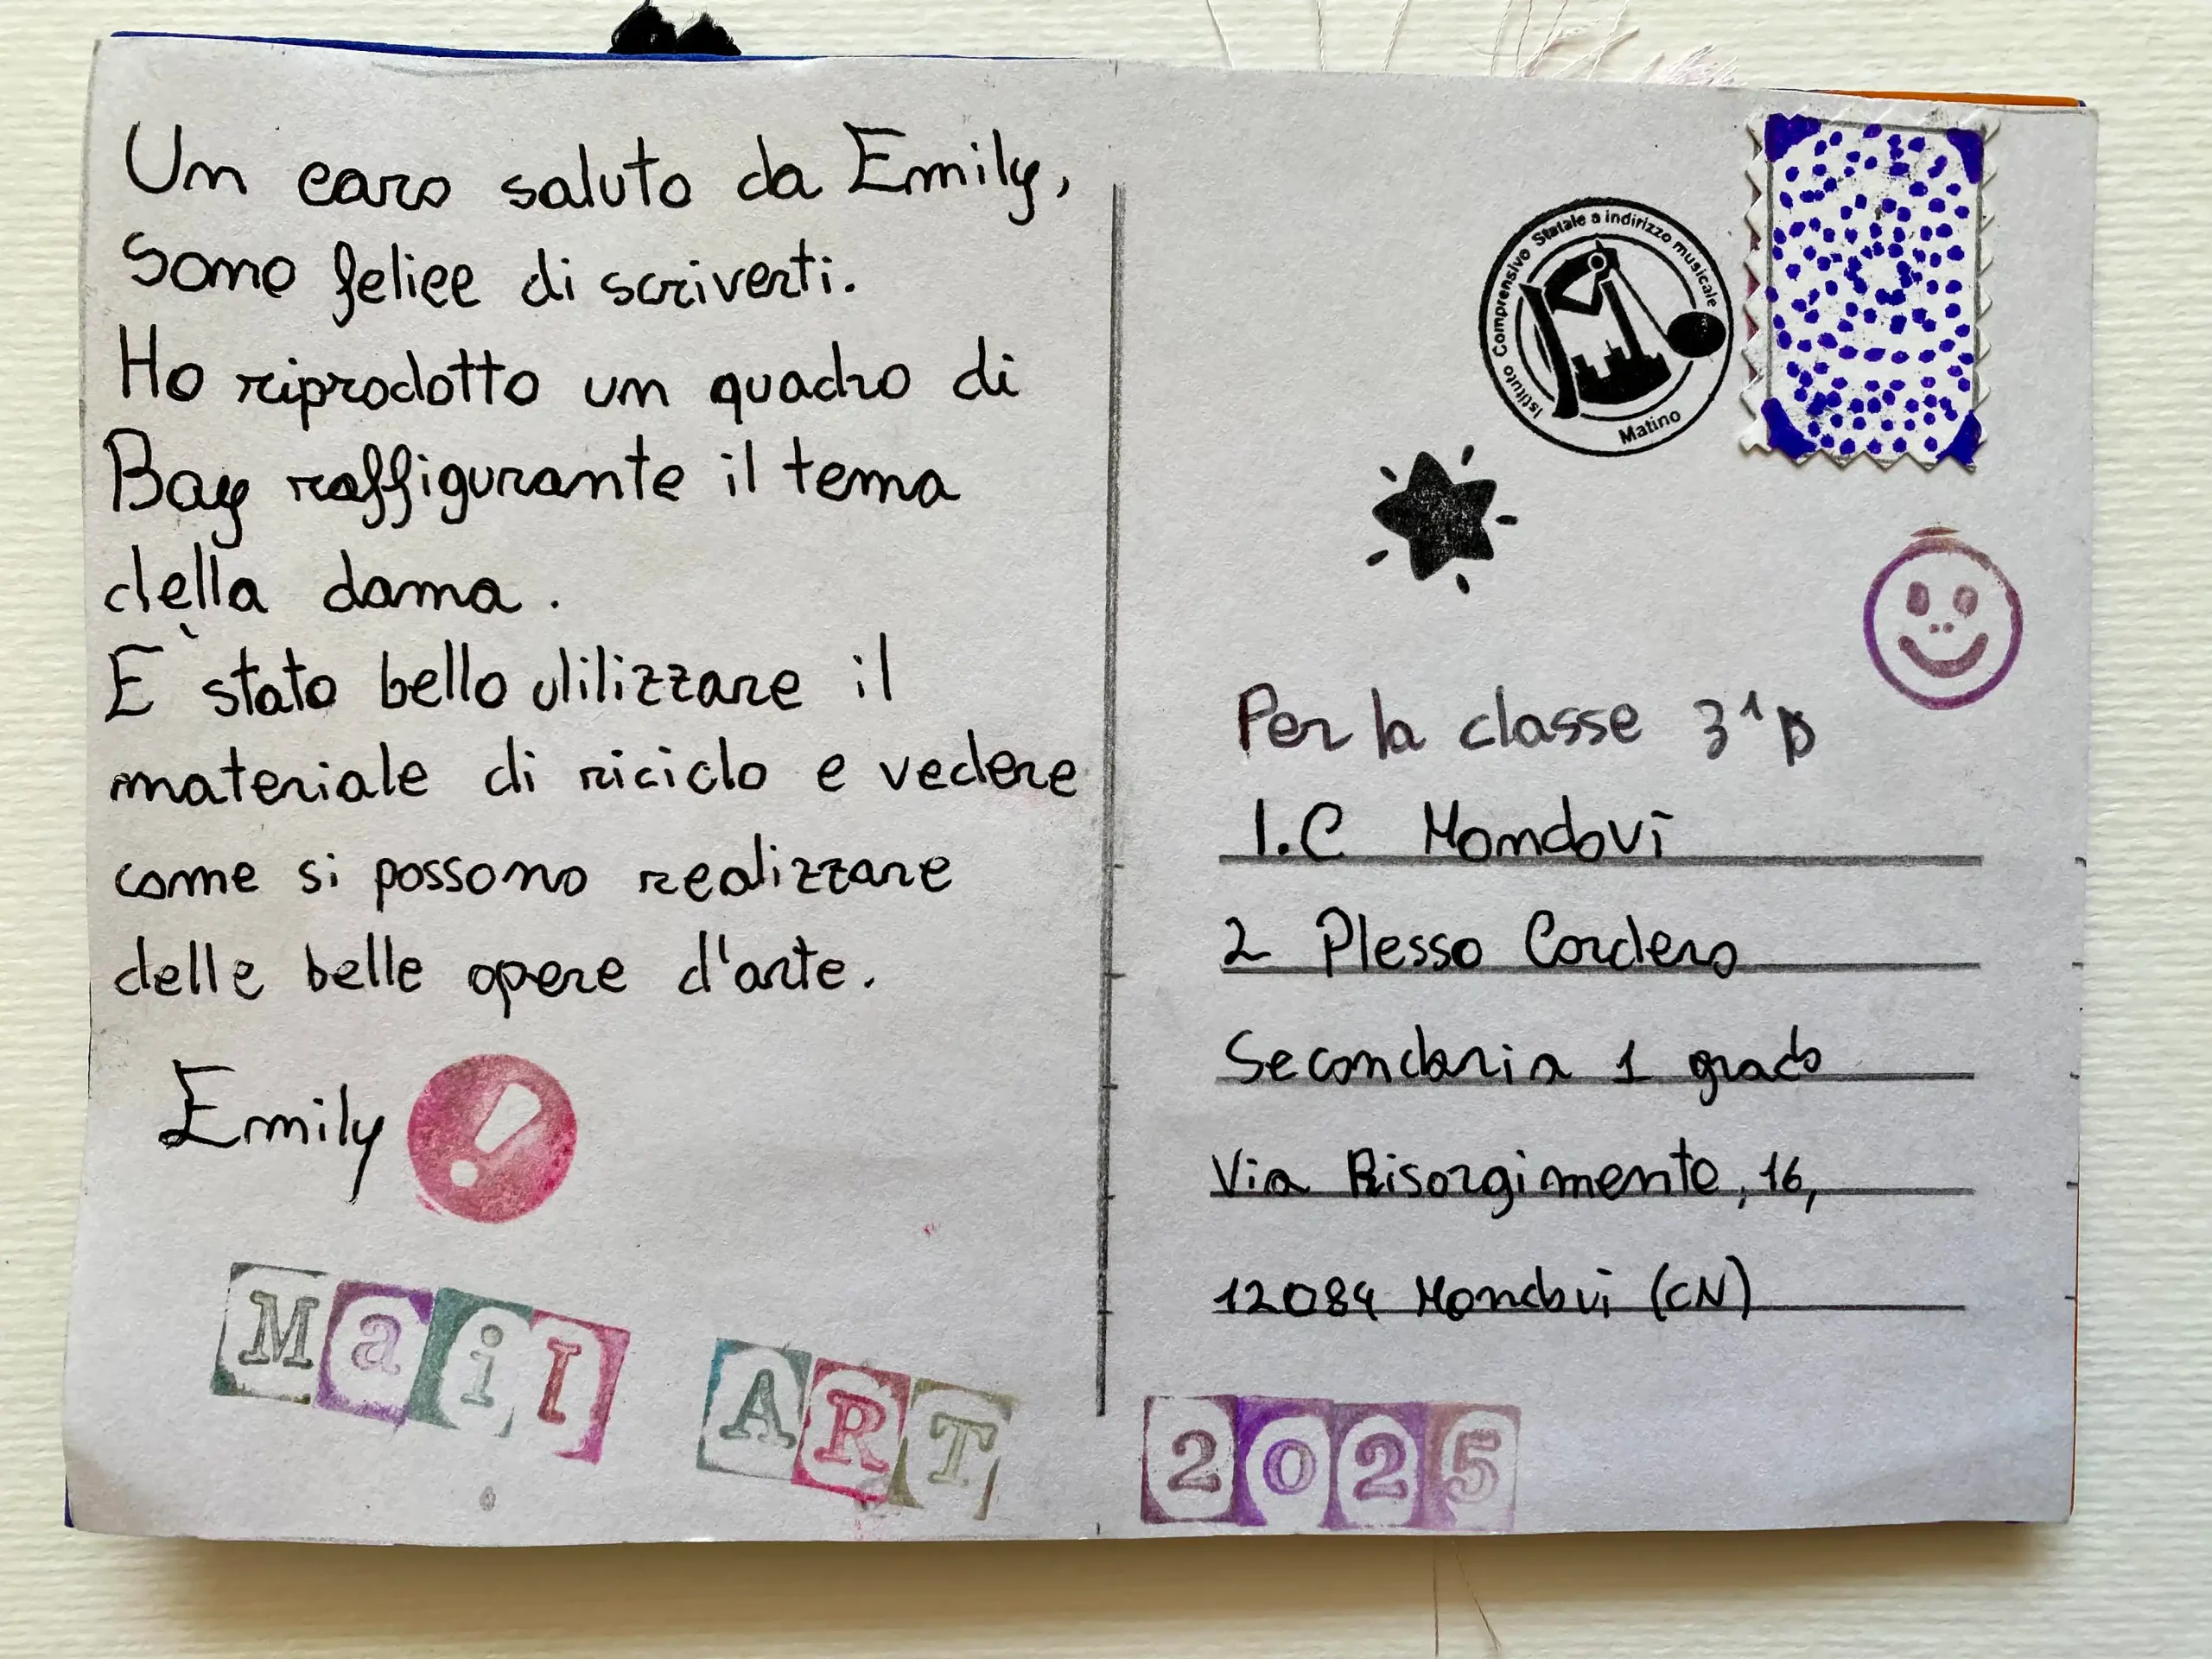 Un caro saluto da Emily,
Sono felice di scriverti.
Ho riprodotto un quadro di
Bay raffigurante il tema
della dama.
È stato bello utilizzare il
materiale di riciclo e vedere
come si possono realizzare
delle belle opere d'arte.
Emily
Mail ART
Istituto Comprensivo Statale a indirizzo musicale
Matino
Per la classe 3^
I.C Mondovì
2 Plesso Cordero
Secondaria 1 grado
Via Risorgimento, 16,
12084 Mondovi (CN)
2025